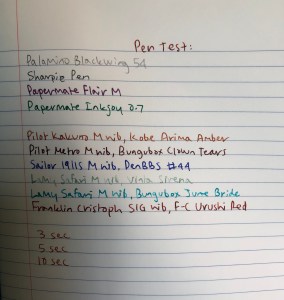 Pen Test:
Palomino Blackwing 54
Sharpie Pen
Papermate Flair M
Papermate Inkjoy 0.7
Pilot Kakuno M nib, Kobe Arima Amber
Pilot Metro M nib, Bungubox Clown Tears
Sailor 1911S M nib, DenBBS #44
Lamy Safari M nib, Vinta Sirena
Lamy Safari M nib, Bungubox June Bride
Franklin Cristoph SIG nib, F-C Urushi Red
3 sec
5 sec
10 sec